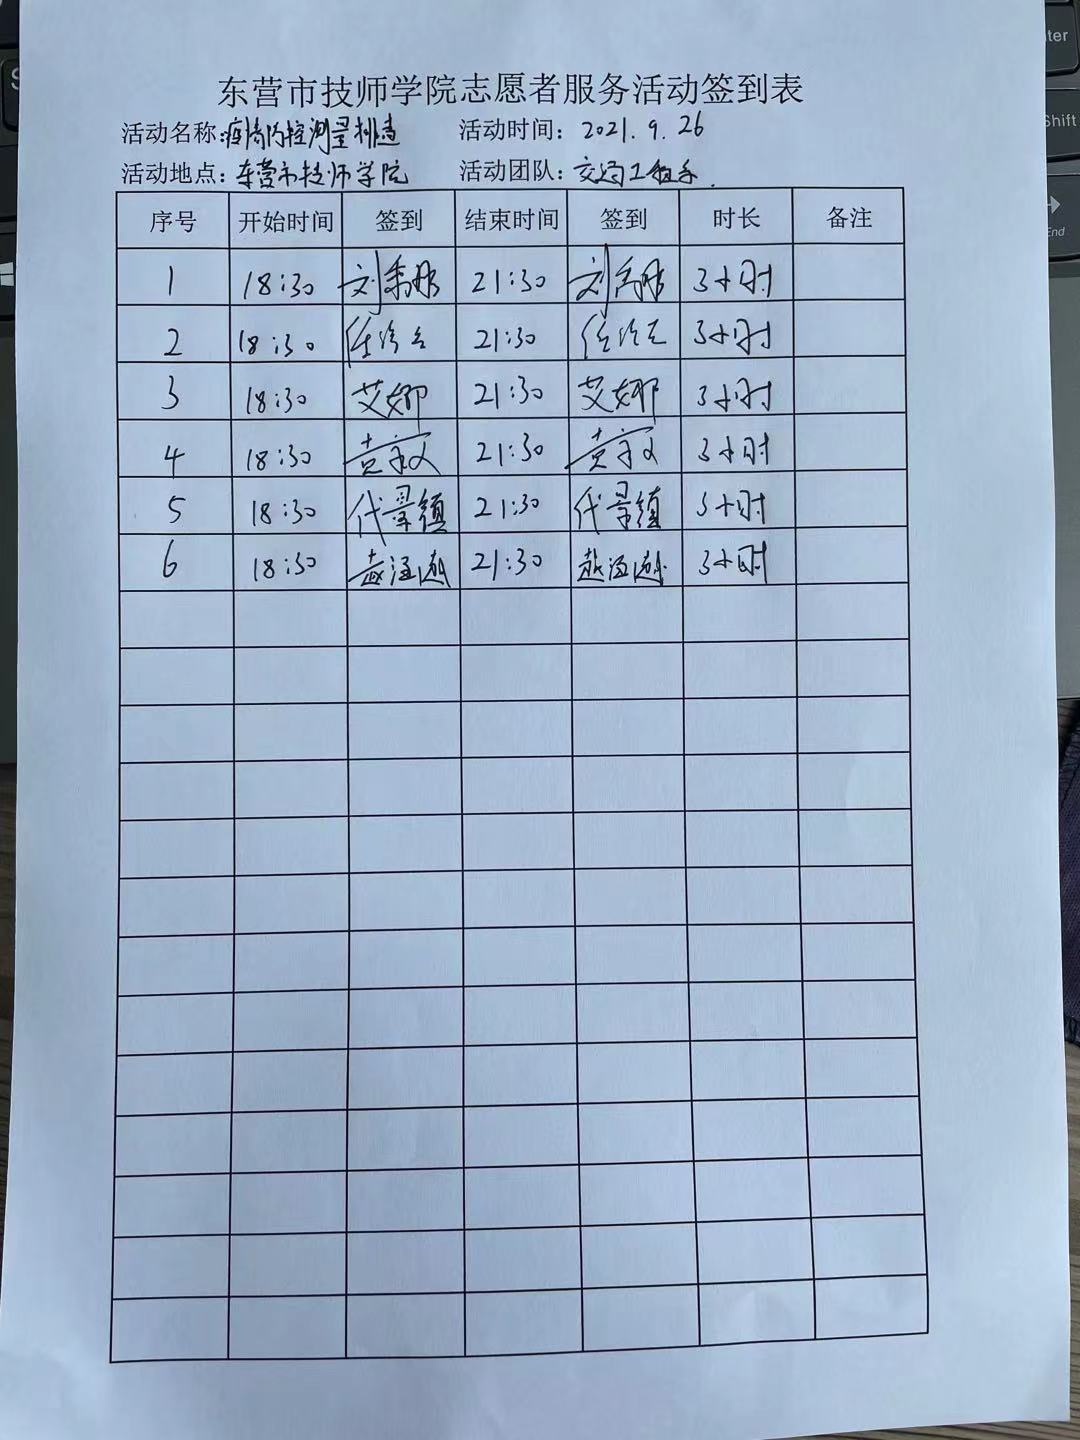 东营市技师学院志愿者服务活动签到表
活动名称:疫情防控测量排查 活动时间: 2021.9.26
活动地点: 东营市技师学院 活动团队: 交通工程系
序号 开始时间 签到 结束时间 签到 时长 备注
1 18:30 21:30 3小时
2 18:30 21:30 3小时
3 18:30 艾娜 21:30 艾娜 3小时
4 18:30 21:30 3小时
5 18:30 代景镇 21:30 代景镇 3小时
6 18:30 21:30 3小时
Shift
End